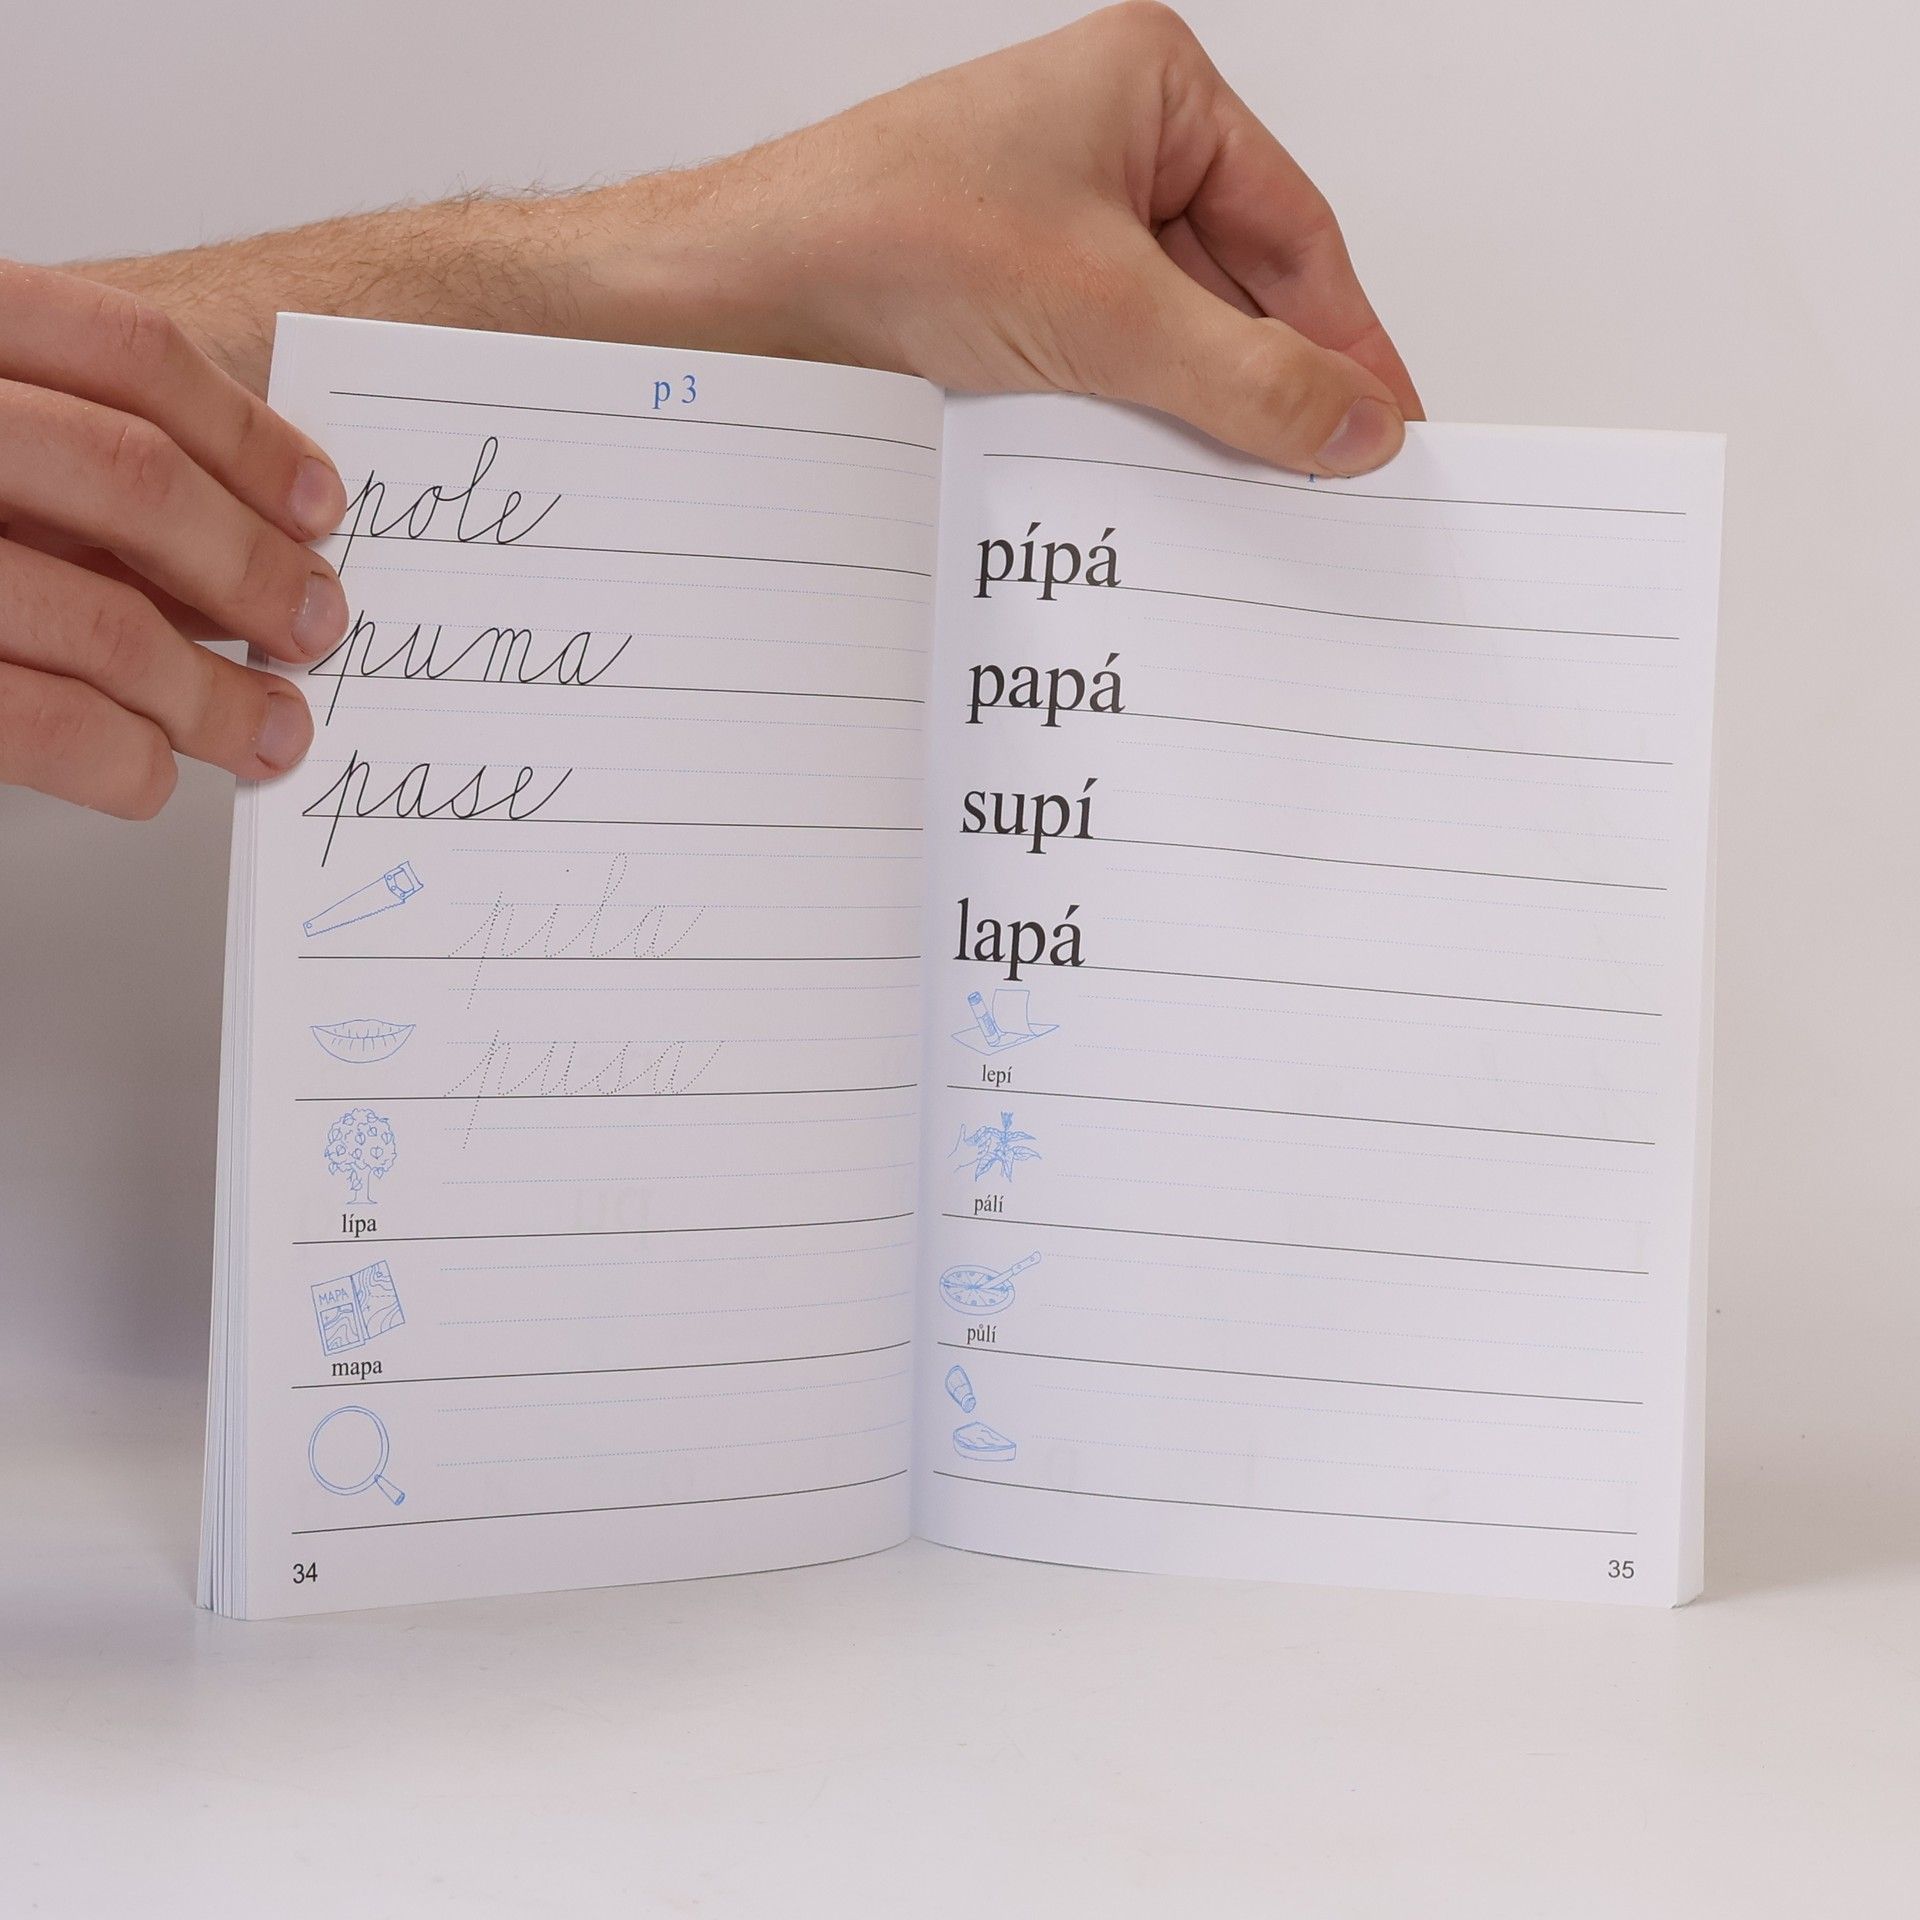 p 3
pole
puma
pase
pila
pusa
lípa
MAPA
mapa
34
pípá
papá
supí
lapá
lepí
pálí
půlí
35